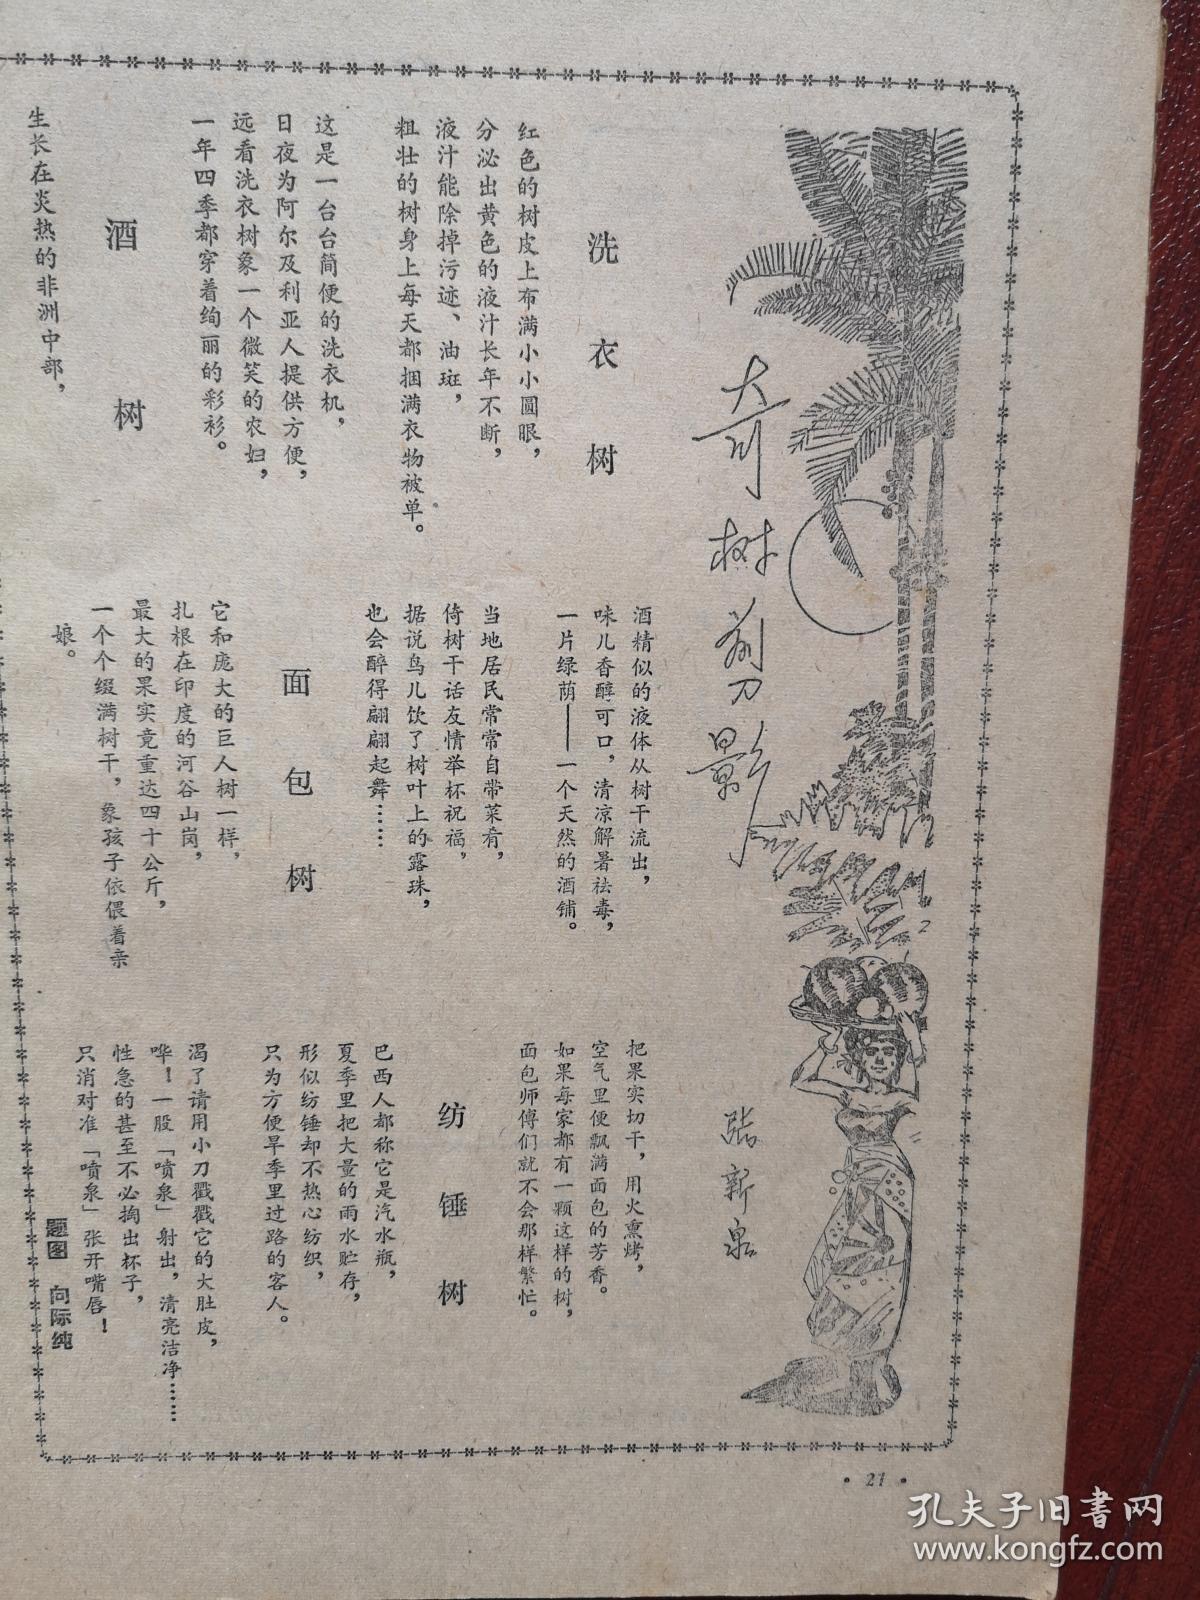 奇树剪影
张新泉
洗衣树
红色的树皮上布满小小圆眼，
分泌出黄色的液汁长年不断，
液汁能除掉污迹、油斑，
粗壮的树身上每天都捆满衣物被单。
这是一台台简便的洗衣机，
日夜为阿尔及利亚人提供方便，
远看洗衣树象一个微笑的农妇，
一年四季都穿着绚丽的彩衫。
酒树
生长在炎热的非洲中部，
酒精似的液体从树干流出，
味儿香醇可口，清凉解暑祛毒，
一片绿荫——一个天然的酒铺。
当地居民常常自带菜肴，
倚树干话友情举杯祝福，
据说鸟儿饮了树叶上的露珠，
也会醉得翩翩起舞……
面包树
它和庞大的巨人树一样，
扎根在印度的河谷山岗，
最大的果实竟重达四十公斤，
一个个缀满树干，象孩子依偎着亲
娘。
把果实切干，用火熏烤，
空气里便飘满面包的芳香。
如果每家都有一颗这样的树，
面包师傅们就不会那样繁忙。
纺锤树
巴西人都称它是汽水瓶，
夏季里把大量的雨水贮存，
形似纺锤却不热心纺织，
只为方便旱季里过路的客人。
渴了请用小刀戳戳它的大肚皮，
哗！一股「喷泉」射出，清亮洁净……
性急的甚至不必掏出杯子，
只消对准「喷泉」张开嘴唇！
题图 向际纯
• 21 •
孔夫子旧书网
www.kongfz.com